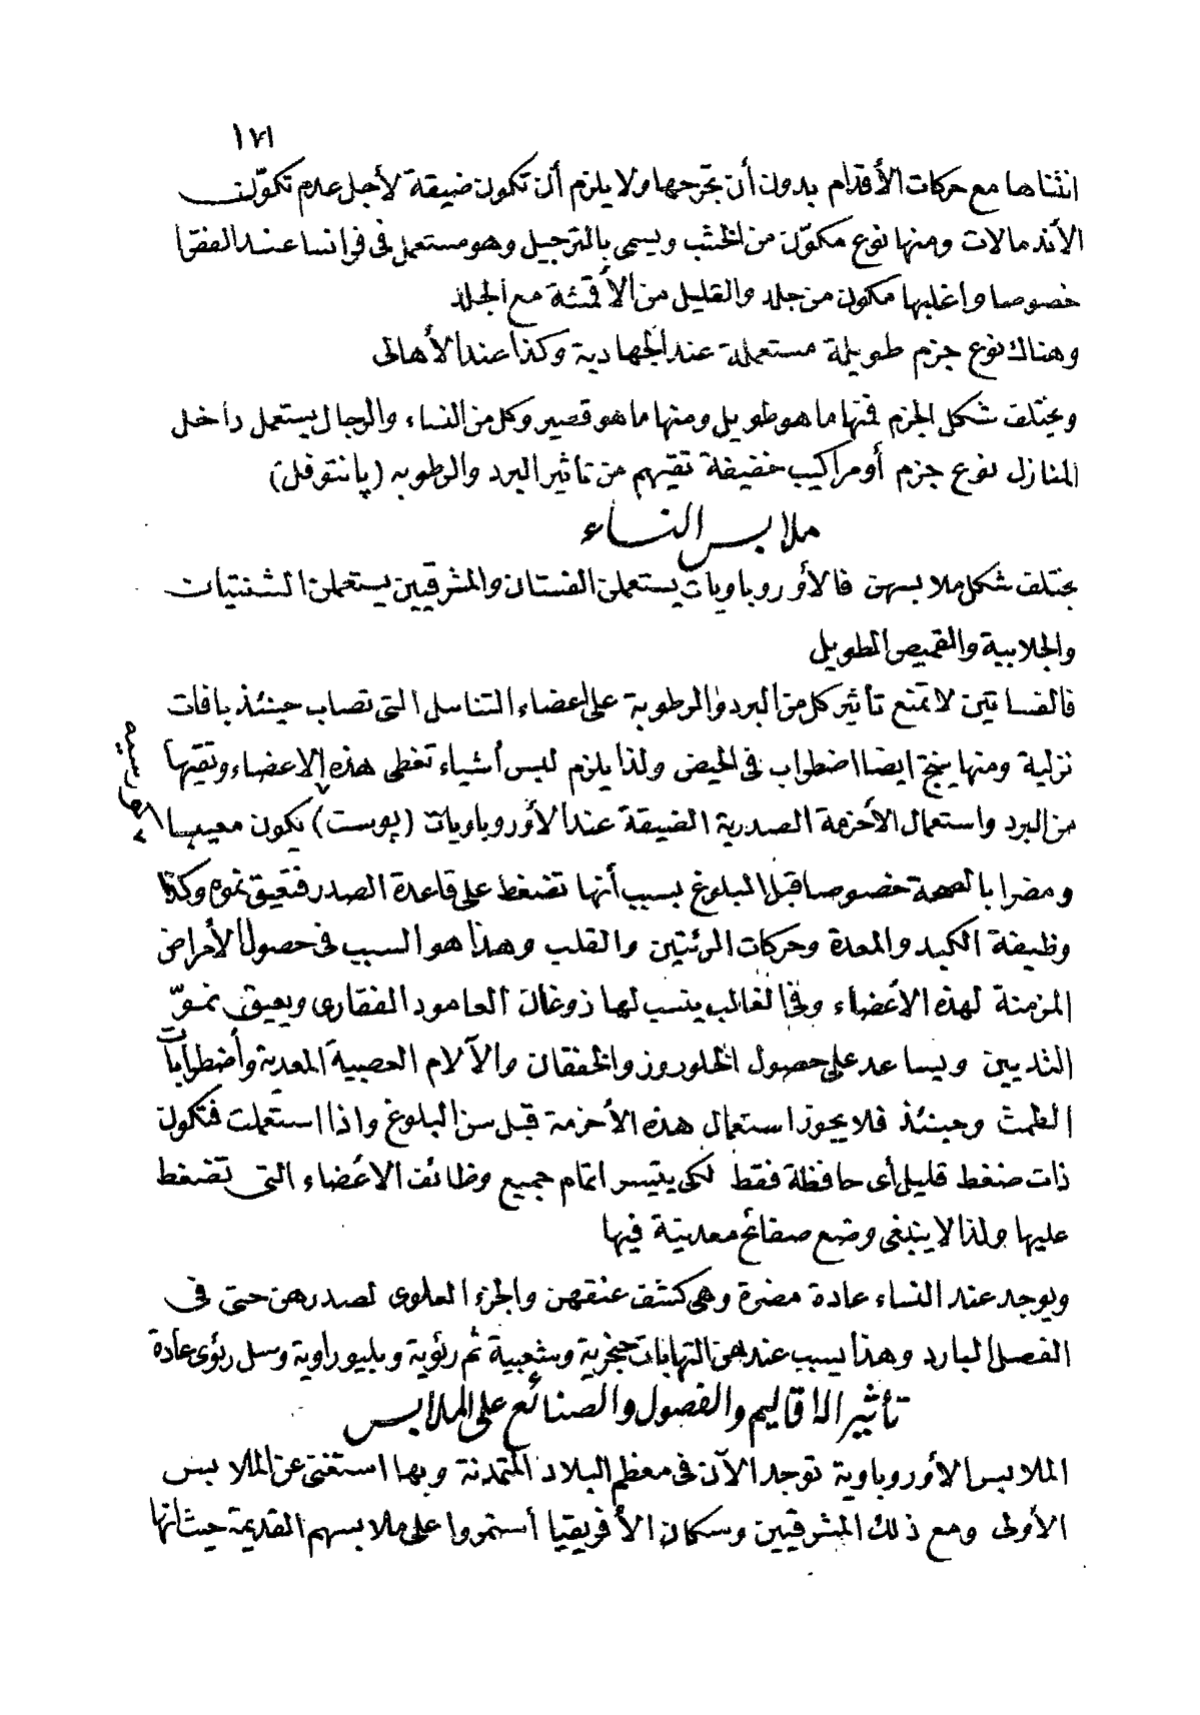 ١٧١
انثناها مع حركات الأقدام بدون أن تجرحها ولا يلزم أن تكون ضيقة لأجل عدم تكوّن
الأندمالات ومنها نوع مكوّن من الخشب ويسمى بالترجيل وهو مستعمل فى فرانسا عند الفقرا
خصوصا واغلبها مكون من جلد والقليل من الأقمشة مع الجلد
وهناك نوع جزم طويلة مستعملة عند الجهادية وكذا عند الأهالى
ويختلف شكل الجزم فمنها ما هو طويل ومنها ما هو قصير وكل من النساء والرجال يستعمل داخل
المنازل نوع جزم أو مراكيب خفيفة تقيهم من تاثير البرد والرطوبه (پانتوفلى)
ملابس النساء
يختلف شكل ملابسهن فالأوروباويات يستعملن الفستان والمشرقيين يستعملن الشنتيات
والجلابية والقميص الطويل
فالفساتين لا تمنع تأثير كل من البرد والرطوبة على اعضاء التناسل التى تصاب حينئذ بافات
نزلية ومنها ينتج ايضا اضطراب فى الحيض ولذا يلزم لبس أشياء تغطى هذه الاعضاء وتقيها
من البرد واستعمال الأحزمة الصدرية الضيقة عند الأوروباويات (پوست) يكون معيبا
ومضرا بالصحة خصوصا قبل البلوغ بسبب أنها تضغط على قاعدة الصدر فتعيق نموه وكذا
وظيفة الكبد والمعدة وحركات الرئتين والقلب وهذا هو السبب فى حصول الأمراض
المزمنة لهذه الأعضاء وفى الغالب ينسب لها زوغان العامود الفقارى ويعيق نموّ
الثديين ويساعد على حصول الخلوروز والخفقان والآلام العصبية المعدية وأضطرابات
الطمث وحينئذ فلا يجوز استعمال هذه الأحزمة قبل سن البلوغ واذا استعملت فتكون
ذات ضغط قليل أى حافظة فقط لكى يتيسر اتمام جميع وظائف الاعضاء التى تضغط
عليها ولذا لا ينبغى وضع صفائح معدنية فيها
ويوجد عند النساء عادة مضرة وهى كشف عنقهن والجزء العلوى لصدرهن حتى فى
الفصل البارد وهذا يسبب عندهن التهابات حنجرية وشعبية ثم رئوية وبليوراوية وسل رئوى عادة
تأثير الاقاليم والفصول والصنائع على الملابس
الملابس الأوروباوية توجد الآن فى معظم البلاد المتمدنة وبها استغنى عن الملابس
الأولى ومع ذلك المشرقيين وسكان الأفريقيا أستمروا على ملابسهم القديمة حيث انها